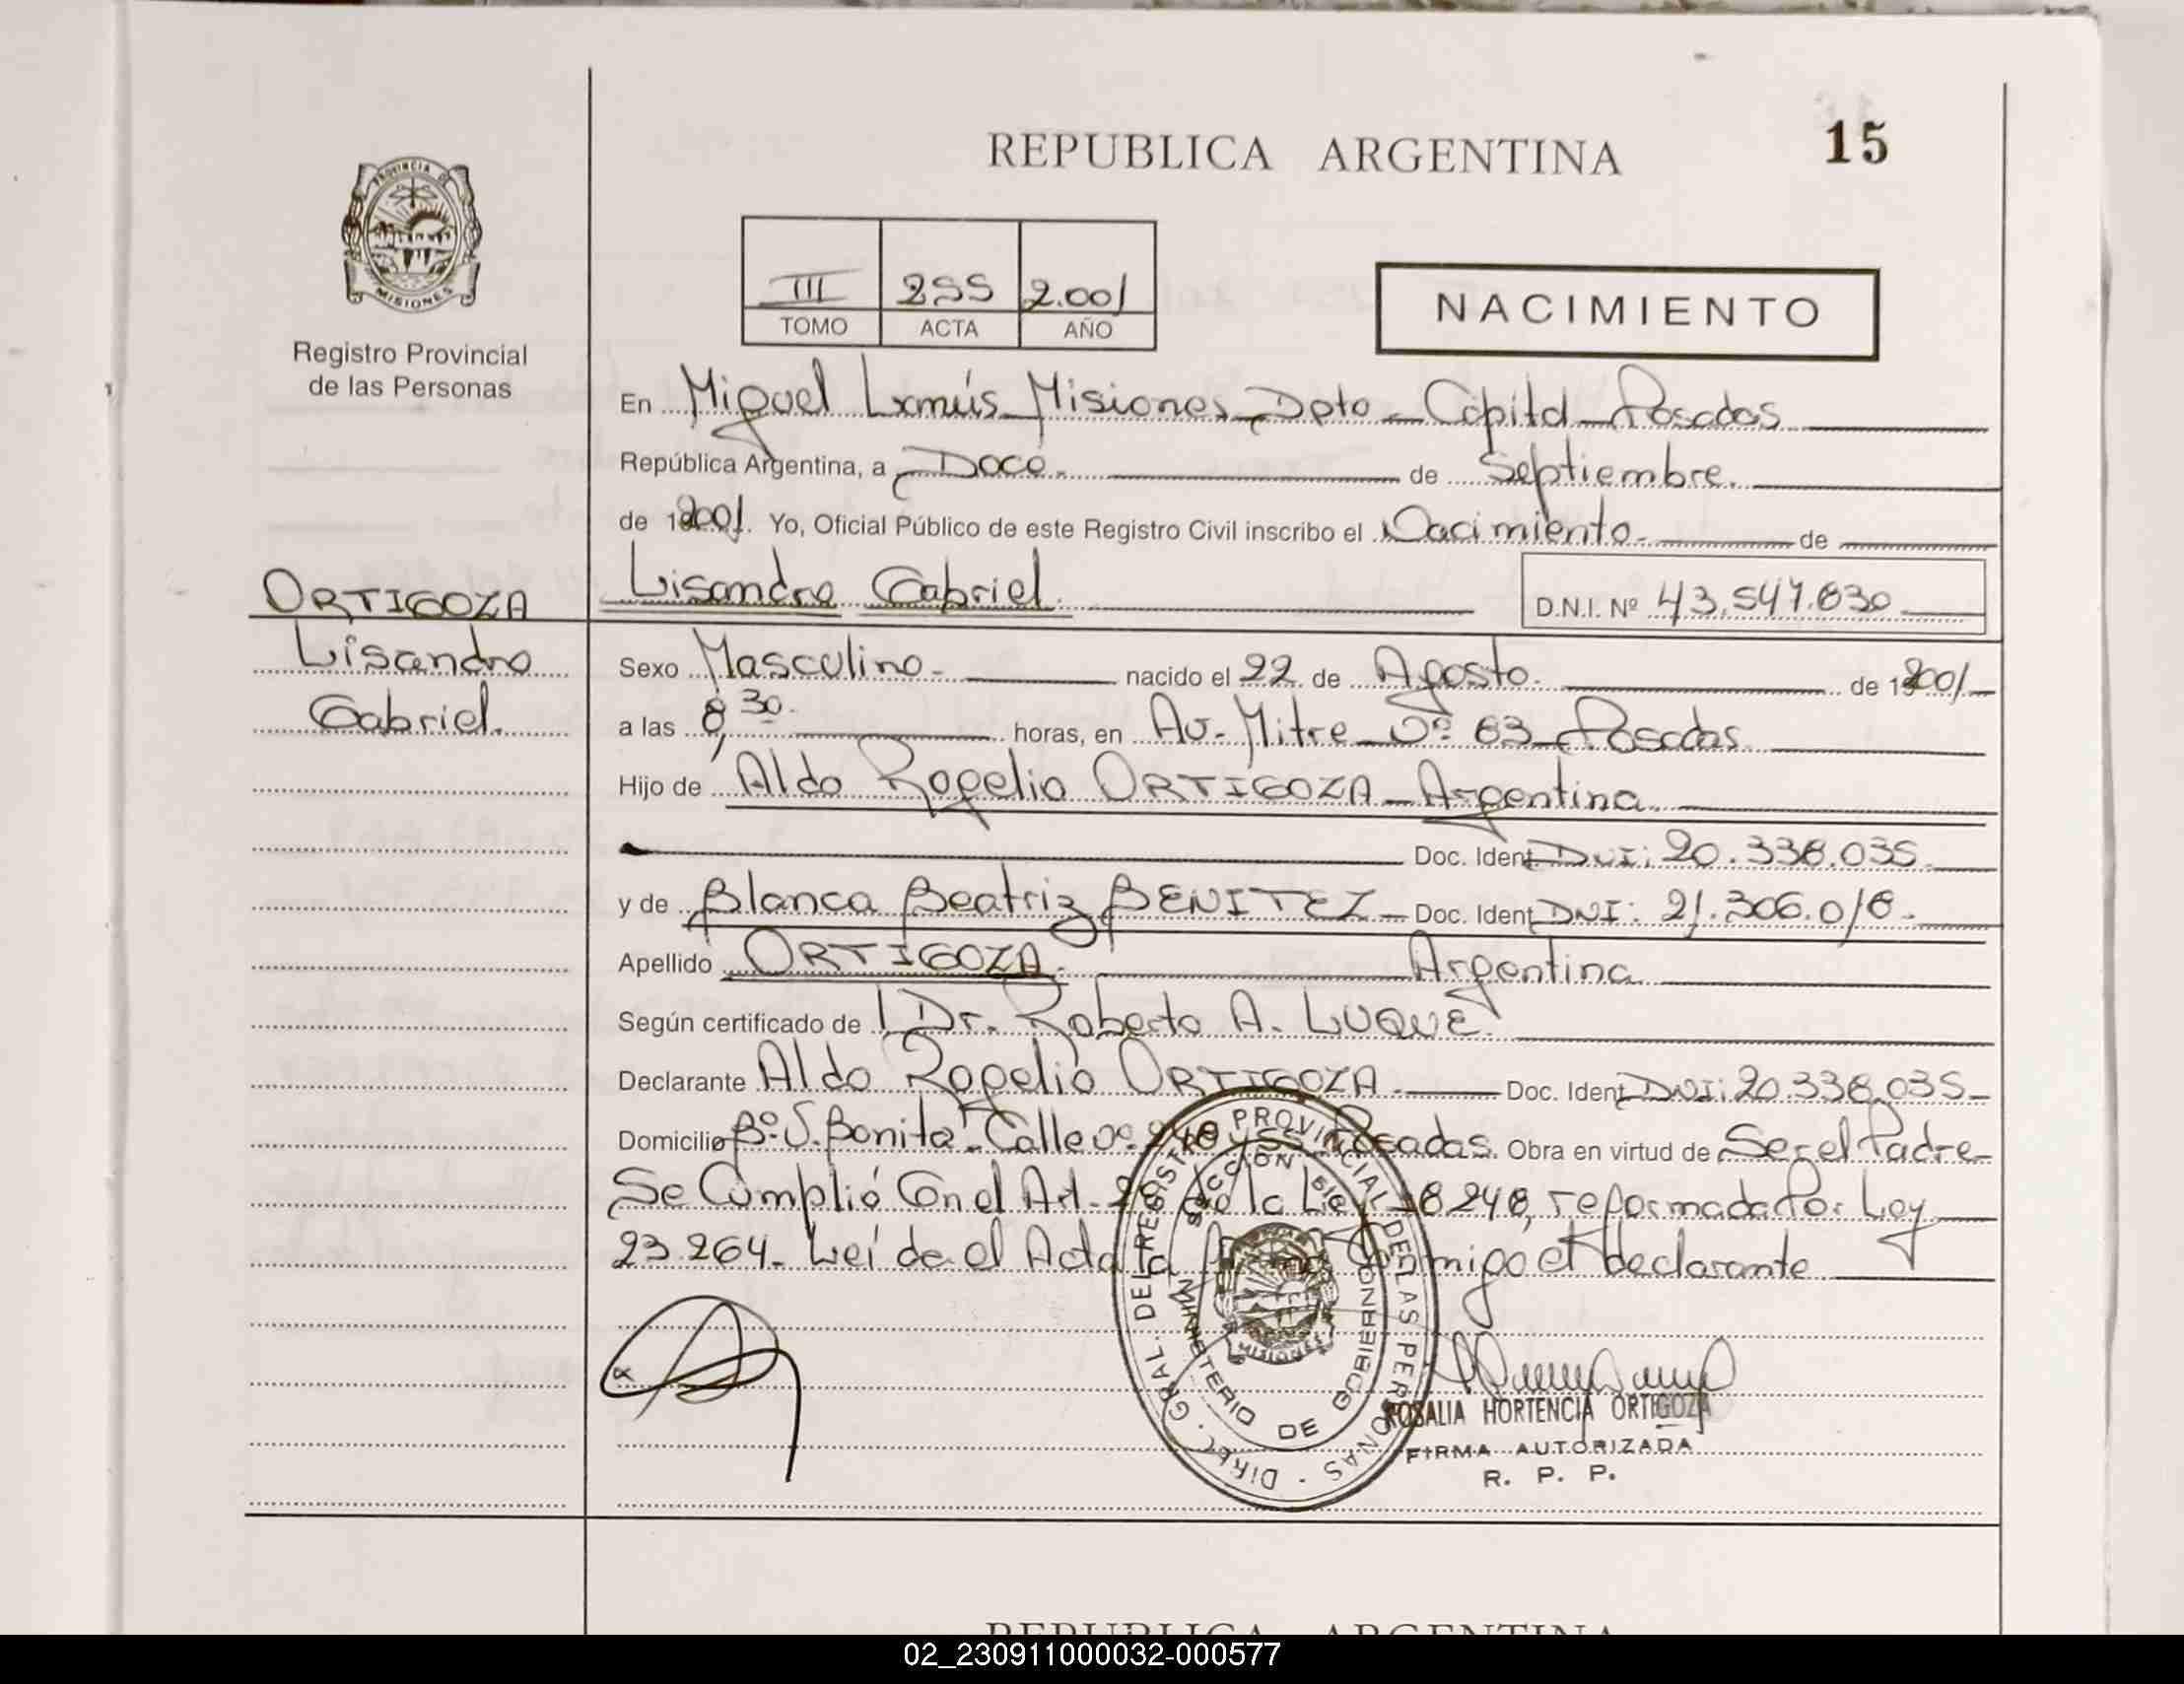 REPUBLICA ARGENTINA
15
PROVINCIA DE
MISIONES
Registro Provincial
de las Personas
III 255 2.001
TOMO ACTA AÑO
NACIMIENTO
En Miguel Lanús Misiones Dpto - Capital - Posadas
República Argentina, a Doce. de Septiembre.
de 2001. Yo, Oficial Público de este Registro Civil inscribo el Nacimiento- de
ORTIGOZA
Lisandro
Gabriel.
Lisandro Gabriel. D.N.I. Nº 43.547.830
Sexo Masculino- nacido el 22 de Agosto. de 2001
a las 8,30. horas, en Av. Mitre Nº 63 - Posadas
Hijo de Aldo Rogelio ORTIGOZA - Argentina.
Doc. Ident DNI: 20.338.035.
y de Blanca Beatriz BENITEZ - Doc. Ident DNI: 21.306.018.
Apellido ORTIGOZA. Argentina
Según certificado de Dr. Roberto A. LUQUE.
Declarante Aldo Rogelio ORTIGOZA. Doc. Ident DNI: 20.338.035-
Domicilio Bº. Bonita - Calle Nº Posadas. Obra en virtud de Ser el Padre-
Se Cumplió Con el Art. de la Ley 18248, reformada Por Ley
23.264. Leí de el Acta la Conmigo el declarante
DIREC. GRAL. DEL REGISTRO PROVINCIAL DE LAS PERSONAS
MINISTERIO DE GOBIERNO
MISIONES
ROSALIA HORTENCIA ORTIGOZA
FIRMA AUTORIZADA
R. P. P.
REPUBLICA ARGENTINA
02_230911000032-000577